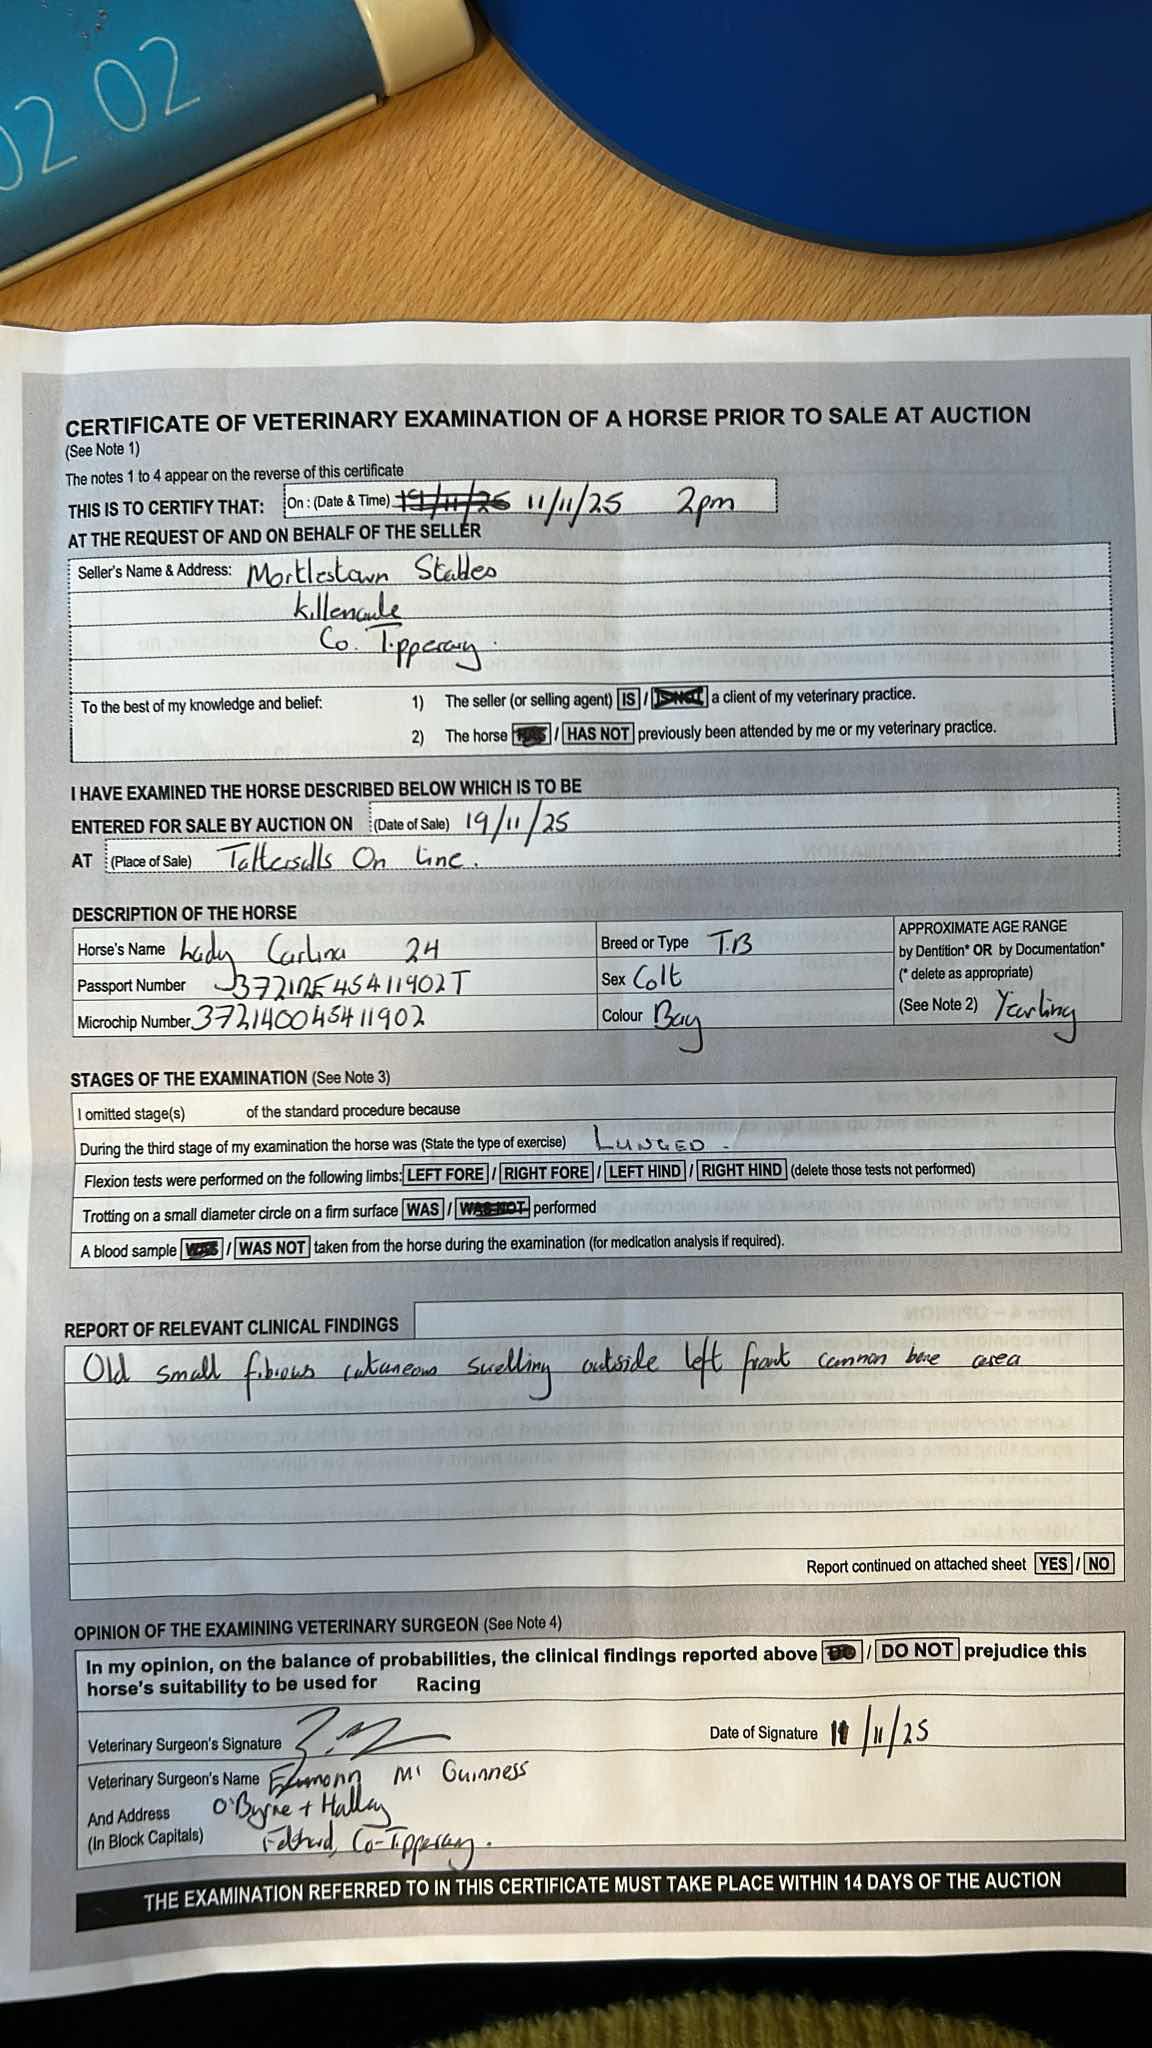 02 02
CERTIFICATE OF VETERINARY EXAMINATION OF A HORSE PRIOR TO SALE AT AUCTION
(See Note 1)
The notes 1 to 4 appear on the reverse of this certificate
THIS IS TO CERTIFY THAT: On : (Date & Time) 19/11/25 11/11/25 2pm
AT THE REQUEST OF AND ON BEHALF OF THE SELLER
Seller's Name & Address: Mortlestown Stables
Killenaule
Co. Tipperary.
To the best of my knowledge and belief: 1) The seller (or selling agent) IS / IS NOT a client of my veterinary practice.
2) The horse HAS / HAS NOT previously been attended by me or my veterinary practice.
I HAVE EXAMINED THE HORSE DESCRIBED BELOW WHICH IS TO BE
ENTERED FOR SALE BY AUCTION ON (Date of Sale) 19/11/25
AT (Place of Sale) Tattersalls On Line.
DESCRIPTION OF THE HORSE
Horse's Name Lady Carlina 24
Passport Number 372IRE45411902T
Microchip Number 372140045411902
Breed or Type T.B
Sex Colt
Colour Bay
APPROXIMATE AGE RANGE
by Dentition* OR by Documentation*
(* delete as appropriate)
(See Note 2) Yearling
STAGES OF THE EXAMINATION (See Note 3)
I omitted stage(s) of the standard procedure because
During the third stage of my examination the horse was (State the type of exercise) LUNGED.
Flexion tests were performed on the following limbs: LEFT FORE / RIGHT FORE / LEFT HIND / RIGHT HIND (delete those tests not performed)
Trotting on a small diameter circle on a firm surface WAS / WAS NOT performed
A blood sample WAS / WAS NOT taken from the horse during the examination (for medication analysis if required).
REPORT OF RELEVANT CLINICAL FINDINGS
Old small fibrous cutaneous swelling outside left front cannon bone area
Report continued on attached sheet YES / NO
OPINION OF THE EXAMINING VETERINARY SURGEON (See Note 4)
In my opinion, on the balance of probabilities, the clinical findings reported above DO / DO NOT prejudice this
horse's suitability to be used for Racing
Veterinary Surgeon's Signature
Date of Signature 11/11/25
Veterinary Surgeon's Name Eamonn Mc Guinness
And Address O'Byrne + Halley
(In Block Capitals) Fethard, Co-Tipperary.
THE EXAMINATION REFERRED TO IN THIS CERTIFICATE MUST TAKE PLACE WITHIN 14 DAYS OF THE AUCTION